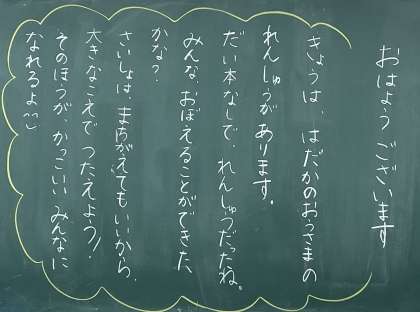 おはようございます
きょうは、はだかのおうさまの
れんしゅうがあります。
だい本なしで、れんしゅうだったね。
みんな、おぼえることができた
かな？
さいしょは、まちがえてもいいから、
大きなこえで つたえよう！
そのほうが、かっこいい みんなに
なれるよ^^